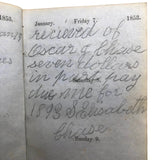 1853. January. Friday 7. 1853.
recieved of
Oscar G Chase
seven dollars
in part pay
due me for
1893 Elisabeth
Chase
Sunday 9.